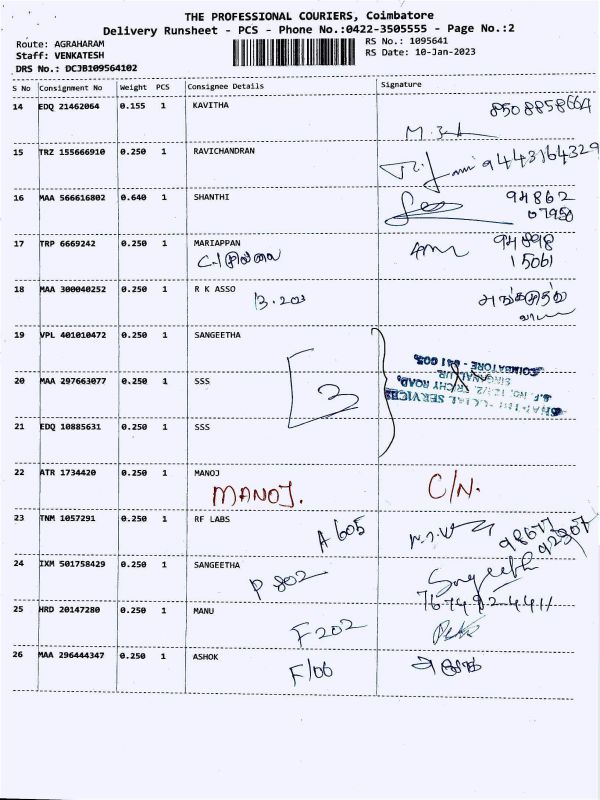 THE PROFESSIONAL COURIERS, Coimbatore
Delivery Runsheet - PCS - Phone No.:0422-3505555 - Page No.:2
Route: AGRAHARAM
RS No.: 1095641
Staff: VENKATESH
RS Date: 10-Jan-2023
DRS No.: DCJB109564102
S No Consignment No Weight PCS Consignee Details Signature
14 EDQ 21462064 0.155 1 KAVITHA 8508858664
15 TRZ 155666910 0.250 1 RAVICHANDRAN 9443164329
16 MAA 566616802 0.640 1 SHANTHI 94862
07950
17 TRP 6669242 0.250 1 MARIAPPAN 94898
15061
18 MAA 300040252 0.250 1 R K ASSO
B.203
19 VPL 401010472 0.250 1 SANGEETHA
20 MAA 297663077 0.250 1 SSS
3
SERVICES
TRICHY ROAD,
COIMBATORE - 641 005.
21 EDQ 10885631 0.250 1 SSS
22 ATR 1734420 0.250 1 MANOJ
MANOJ. C/N.
23 TNM 1057291 0.250 1 RF LABS
A 605 98677
92907
24 IXM 501758429 0.250 1 SANGEETHA
P 802 Sangeetha
7674924411
25 HRD 20147280 0.250 1 MANU
F 202
26 MAA 296444347 0.250 1 ASHOK
F/06